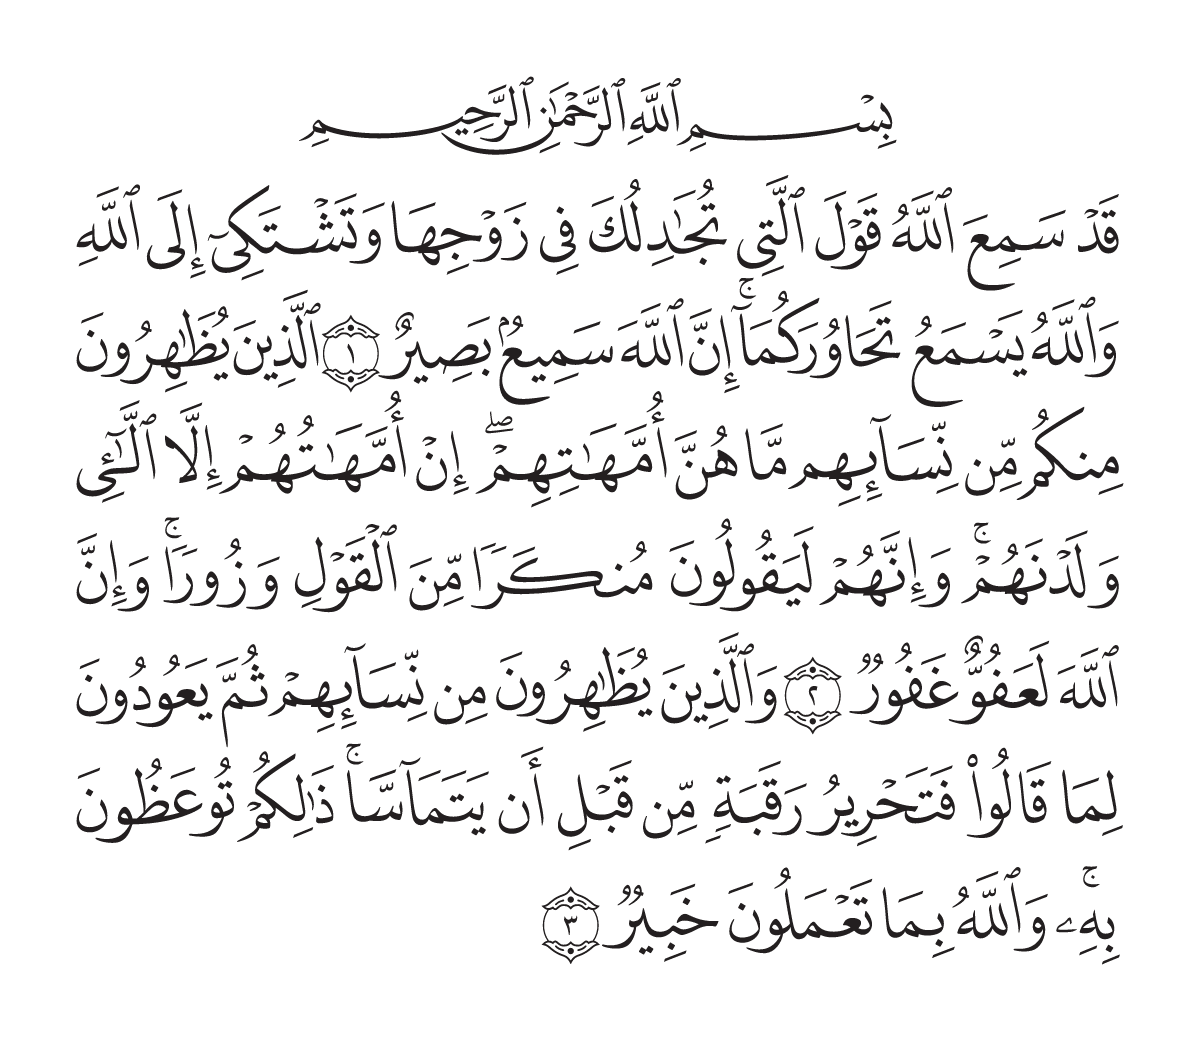 بِسْمِ ٱللَّهِ ٱلرَّحْمَٰنِ ٱلرَّحِيمِ
قَدْ سَمِعَ ٱللَّهُ قَوْلَ ٱلَّتِى تُجَٰدِلُكَ فِى زَوْجِهَا وَتَشْتَكِىٓ إِلَى ٱللَّهِ
وَٱللَّهُ يَسْمَعُ تَحَاوُرَكُمَآ ۚ إِنَّ ٱللَّهَ سَمِيعٌۢ بَصِيرٌ ١ ٱلَّذِينَ يُظَٰهِرُونَ
مِنكُم مِّن نِّسَآئِهِم مَّا هُنَّ أُمَّهَٰتِهِمْ ۖ إِنْ أُمَّهَٰتُهُمْ إِلَّا ٱلَّٰٓـِٔى
وَلَدْنَهُمْ ۚ وَإِنَّهُمْ لَيَقُولُونَ مُنكَرًا مِّنَ ٱلْقَوْلِ وَزُورًا ۚ وَإِنَّ
ٱللَّهَ لَعَفُوٌّ غَفُورٌ ٢ وَٱلَّذِينَ يُظَٰهِرُونَ مِن نِّسَآئِهِمْ ثُمَّ يَعُودُونَ
لِمَا قَالُوا۟ فَتَحْرِيرُ رَقَبَةٍ مِّن قَبْلِ أَن يَتَمَآسَّا ۚ ذَٰلِكُمْ تُوعَظُونَ
بِهِۦ ۚ وَٱللَّهُ بِمَا تَعْمَلُونَ خَبِيرٌ ٣